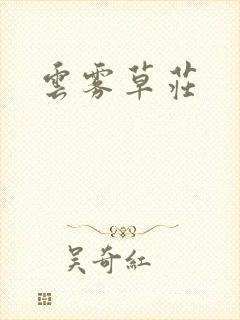 雲霧草莊
吴奇紅